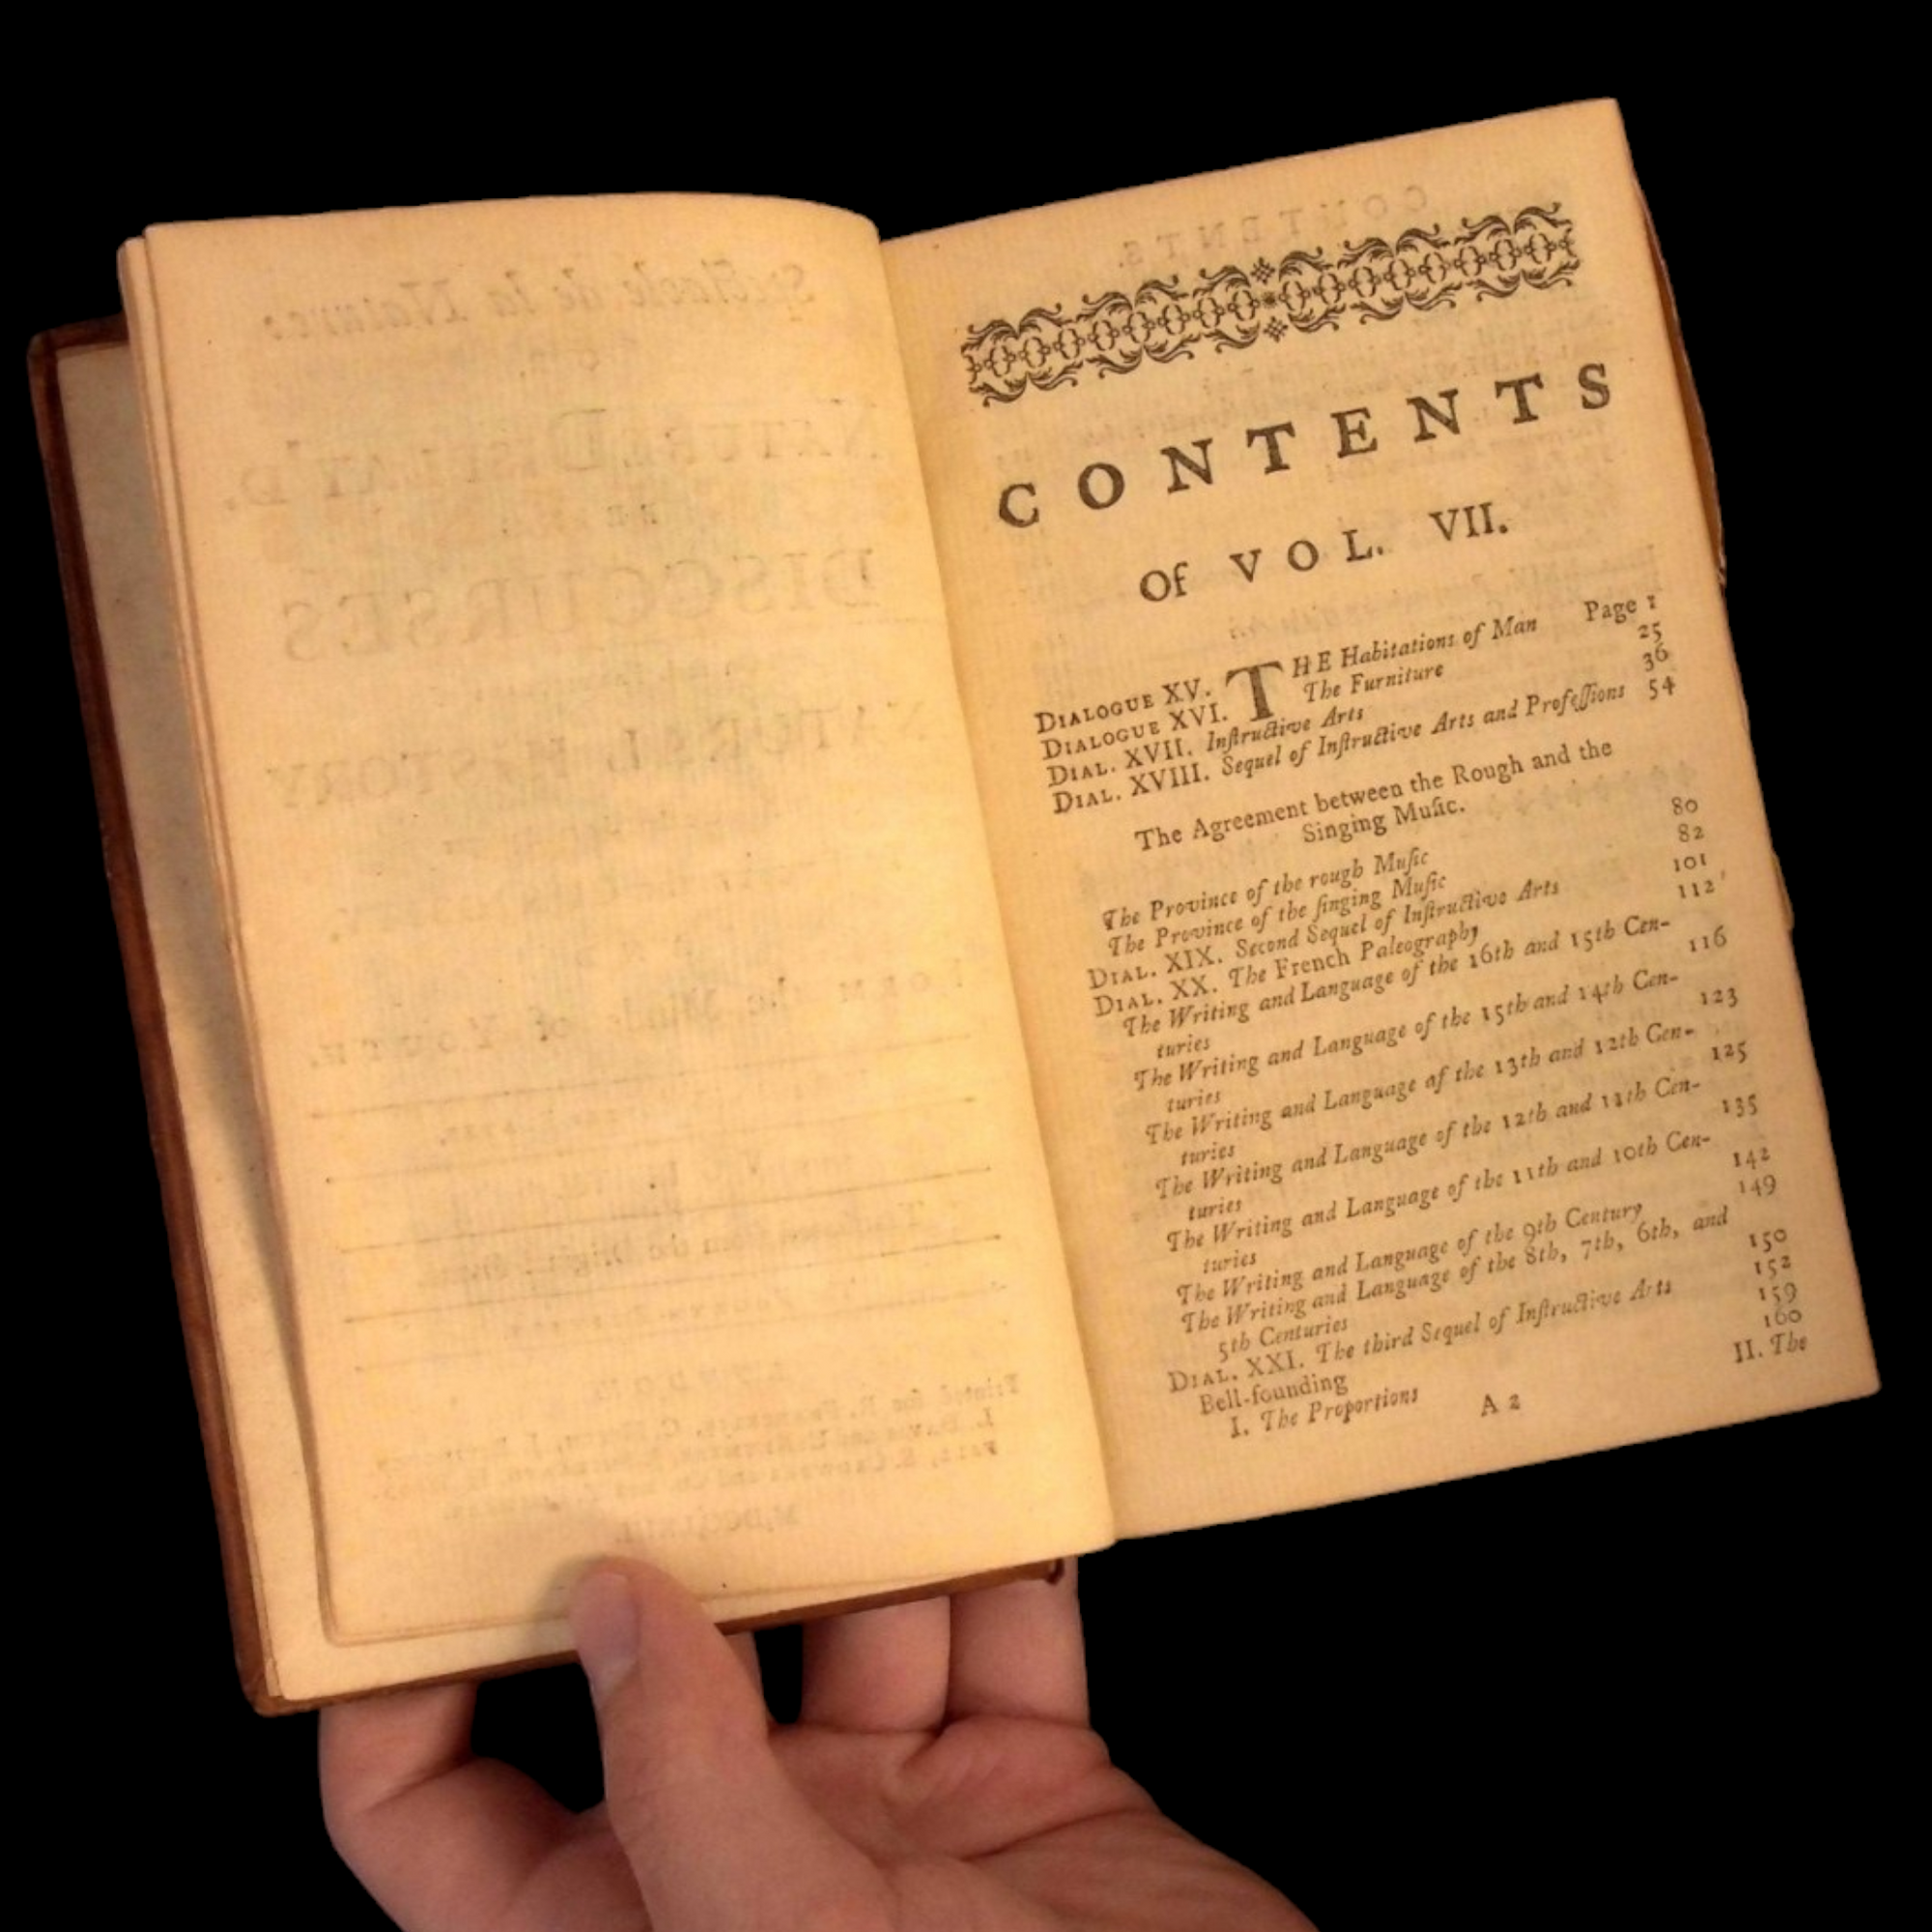 Spectacle de la Nature:
NATURE DISPLAY'D.
DISCOURSES
NATURAL HISTORY
FORM the Mind of YOUTH.
from the Original
LONDON:
Printed for R. FRANCKLIN, C.
L. DAVIS and C. REYMERS,
and Co.
CONTENTS.
CONTENTS
Of VOL. VII.
DIALOGUE XV. THE Habitations of Man Page 1
DIALOGUE XVI. The Furniture 25
DIAL. XVII. Inſtructive Arts 36
DIAL. XVIII. Sequel of Inſtructive Arts and Profeſſions 54
The Agreement between the Rough and the
Singing Muſic.
The Province of the rough Muſic 80
The Province of the ſinging Muſic 82
DIAL. XIX. Second Sequel of Inſtructive Arts 101
DIAL. XX. The French Paleography 112
The Writing and Language of the 16th and 15th Cen-
turies 116
The Writing and Language of the 15th and 14th Cen-
turies 123
The Writing and Language of the 13th and 12th Cen-
turies 125
The Writing and Language of the 12th and 11th Cen-
turies 135
The Writing and Language of the 11th and 10th Cen-
turies 142
The Writing and Language of the 9th Century 149
The Writing and Language of the 8th, 7th, 6th, and
5th Centuries 150
DIAL. XXI. The third Sequel of Inſtructive Arts 152
Bell-founding 159
I. The Proportions 160
A 2 II. The